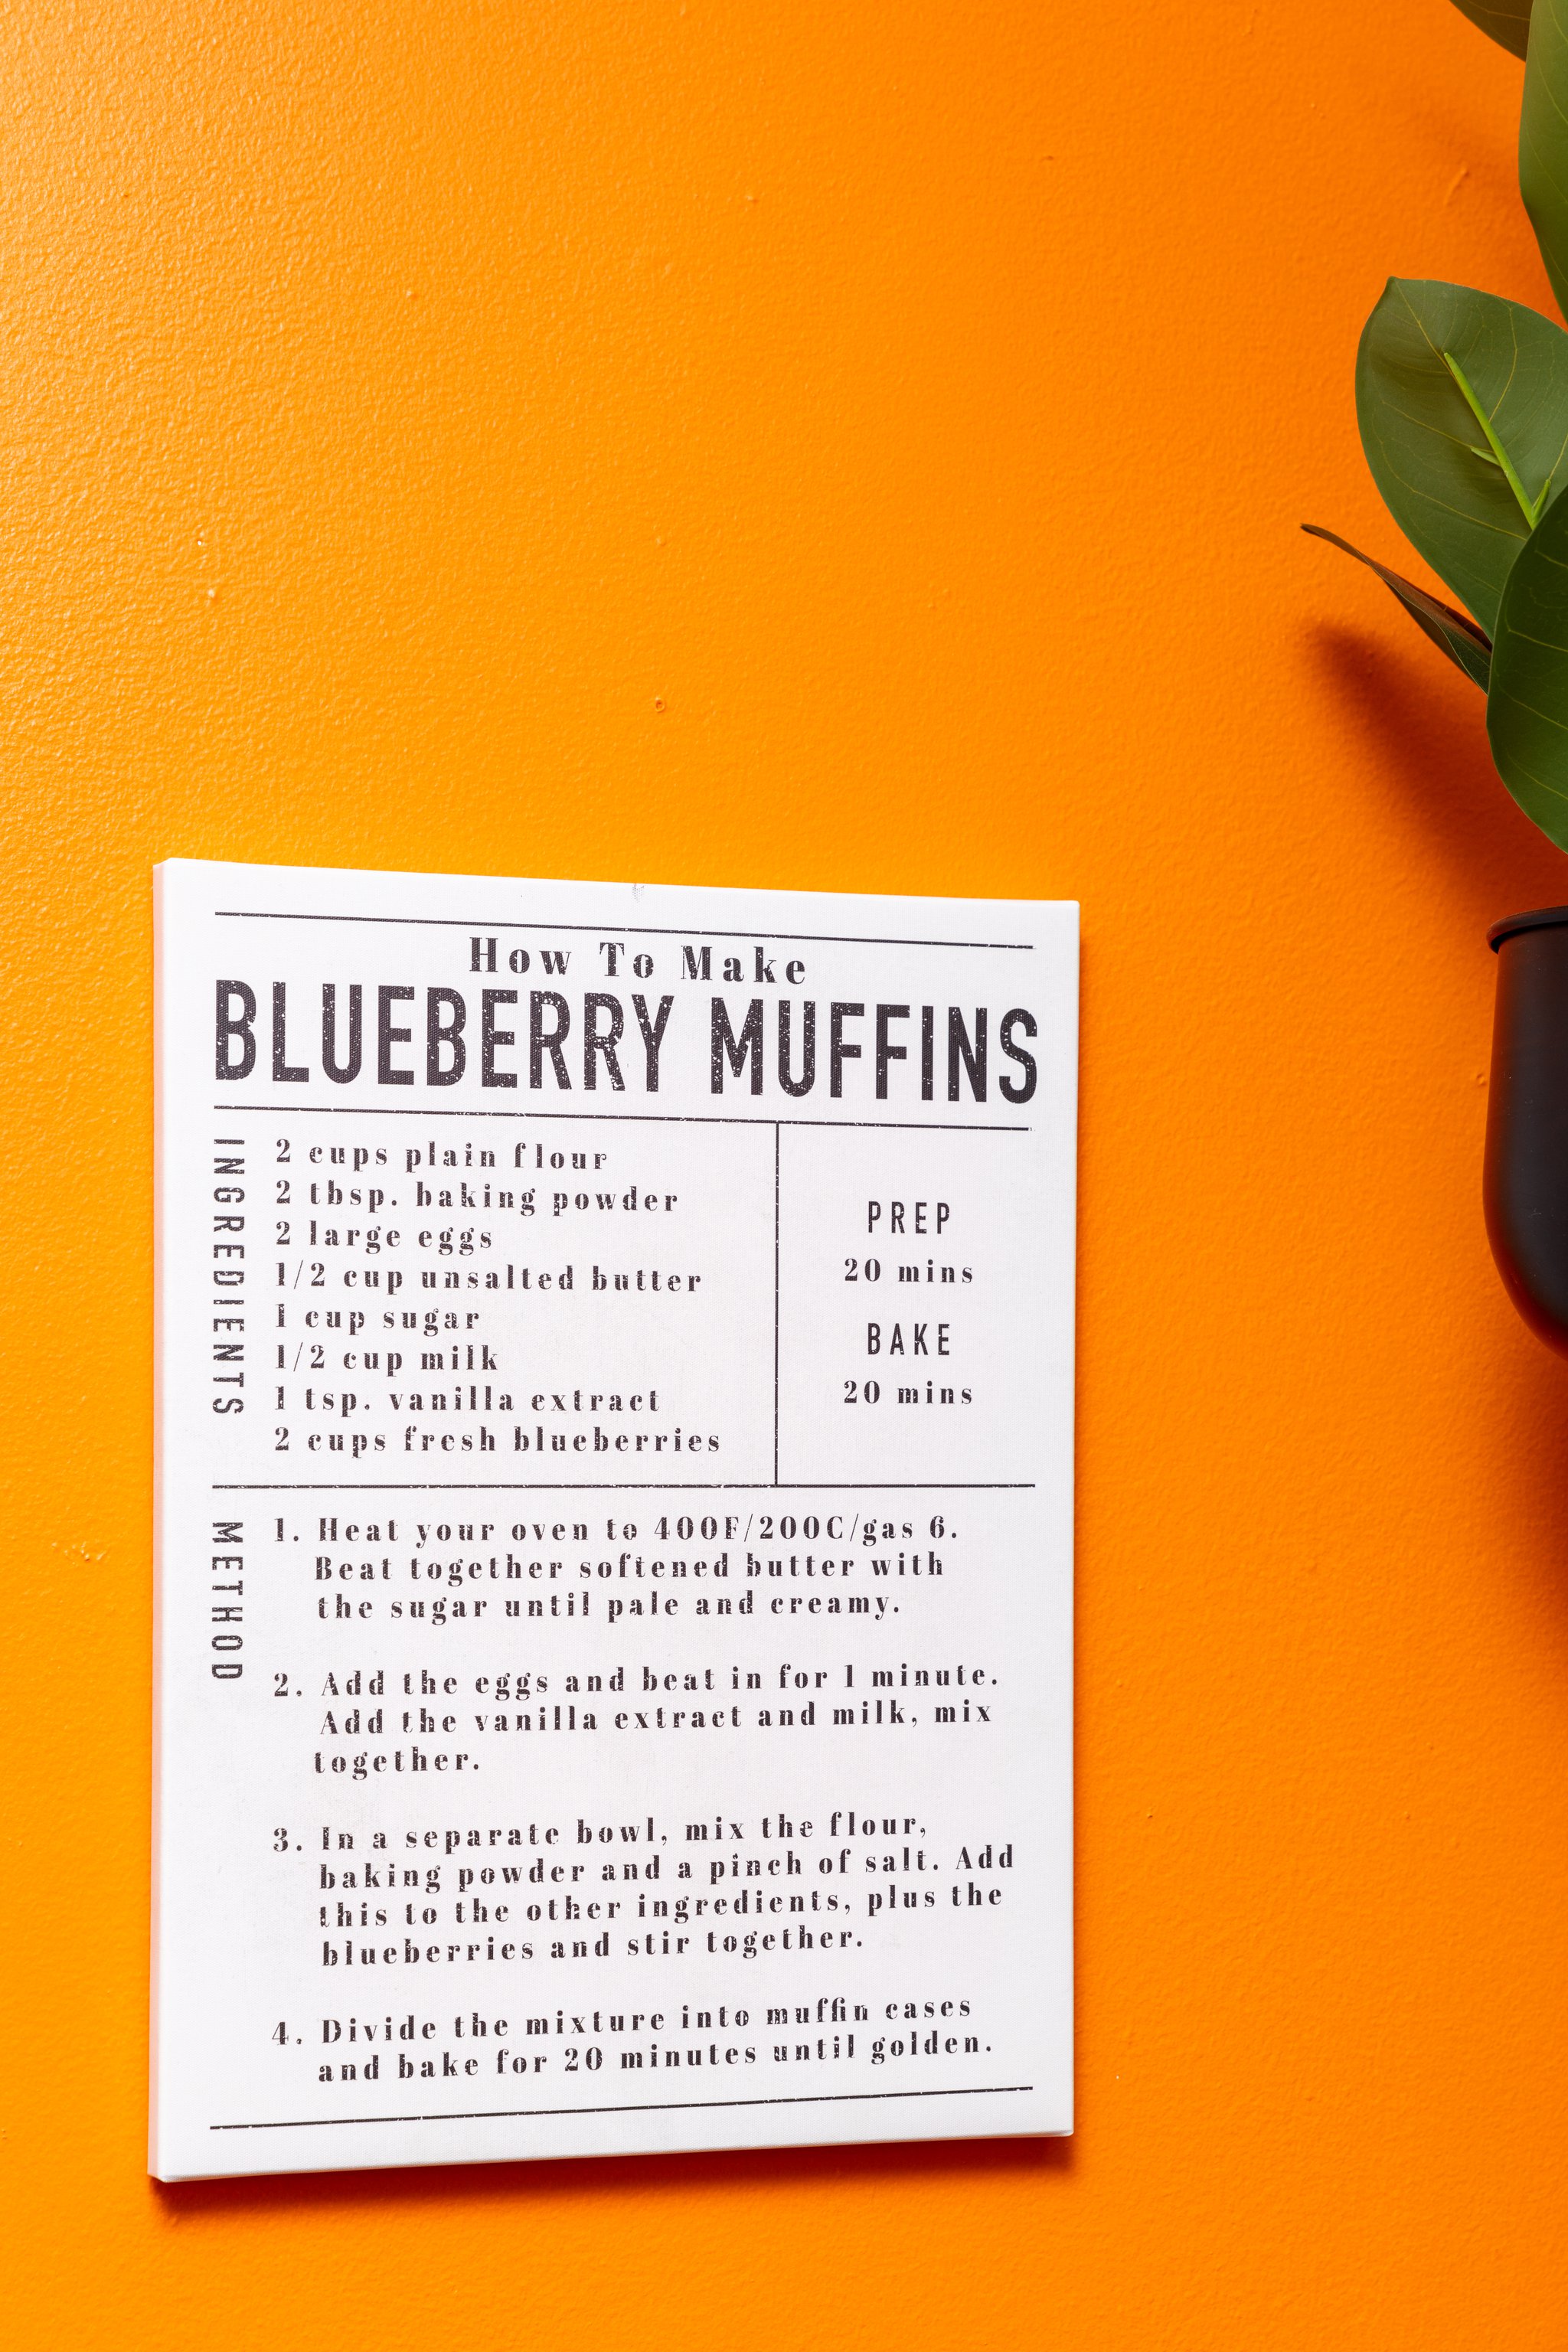 How To Make
BLUEBERRY MUFFINS
INGREDIENTS
2 cups plain flour
2 tbsp. baking powder
2 large eggs
1/2 cup unsalted butter
1 cup sugar
1/2 cup milk
1 tsp. vanilla extract
2 cups fresh blueberries
PREP
20 mins
BAKE
20 mins
METHOD
1. Heat your oven to 400F/200C/gas 6.
Beat together softened butter with
the sugar until pale and creamy.
2. Add the eggs and beat in for 1 minute.
Add the vanilla extract and milk, mix
together.
3. In a separate bowl, mix the flour,
baking powder and a pinch of salt. Add
this to the other ingredients, plus the
blueberries and stir together.
4. Divide the mixture into muffin cases
and bake for 20 minutes until golden.